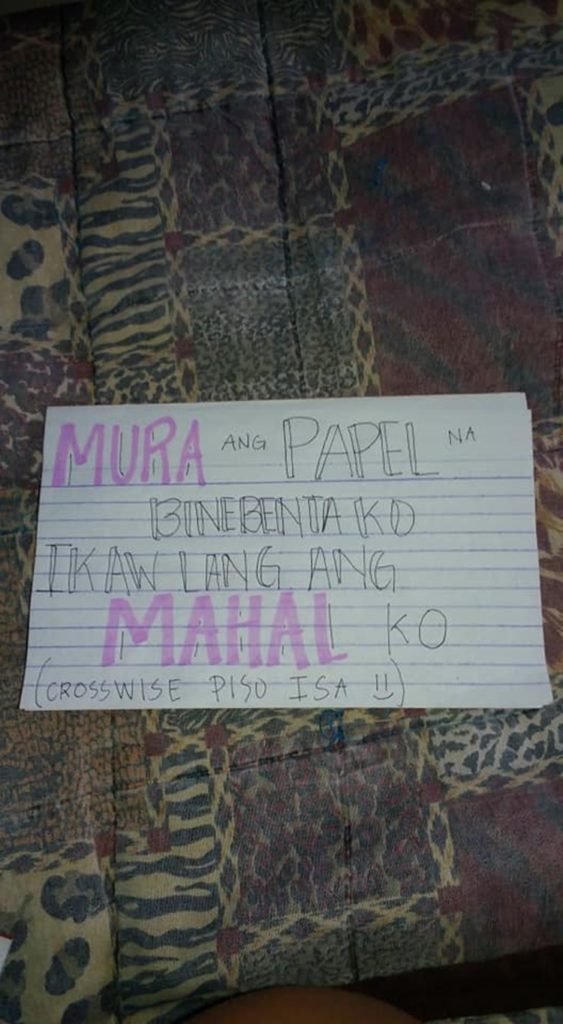 MURA ANG PAPEL NA
BINEBENTA KO
IKAW LANG ANG
MAHAL KO
(CROSSWISE PISO ISA !!)